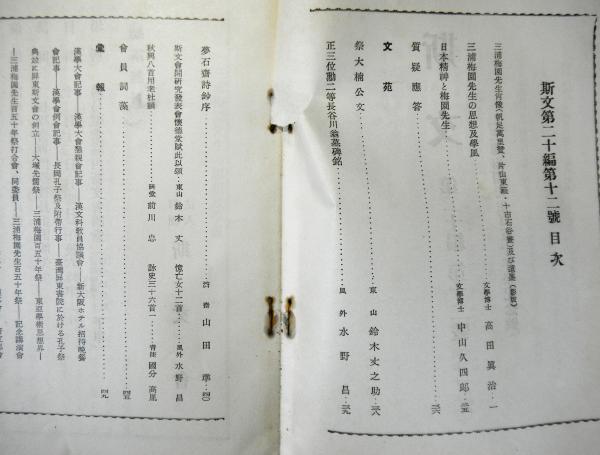 斯文第二十編第十二號目次
三浦梅園先生肖像(帆足萬里贊、片山東籬・十市石谷畫)及び遺墨(影版)
三浦梅園先生の思想及學風 文學博士 高田眞治 一
日本精神と梅園先生 文學博士 中山久四郎
質疑應答
文苑
祭大楠公文 東山 鈴木丈之助
正三位勳二等長谷川翁墓碑銘 風外 水野昌
夢石齋詩鈔序 濟齋 山田準
斯文會開研究發表會懷德堂賦此以頌 東山 鈴木丈 憶亡女十二首 風外 水野昌
秋興八首用老杜韻 研堂 前川忠 詠史三十六首 青厓 國分高胤
會員詞藻
彙報
漢學大會記事──漢學大會懇親會記事──漢文科敎員協議會──新大阪ホテル招待晩餐
會記事──漢學會例會記事──長岡孔子祭及附帶行事──臺灣屛東書院に於ける孔子祭
典並に屛東斯文會の創立──大塚先儒祭──三浦梅園百五十年祭──東亞學術思想界─
─三浦梅園先生百五十年祭打合會、同委員──三浦梅園先生百五十年祭──記念講演會